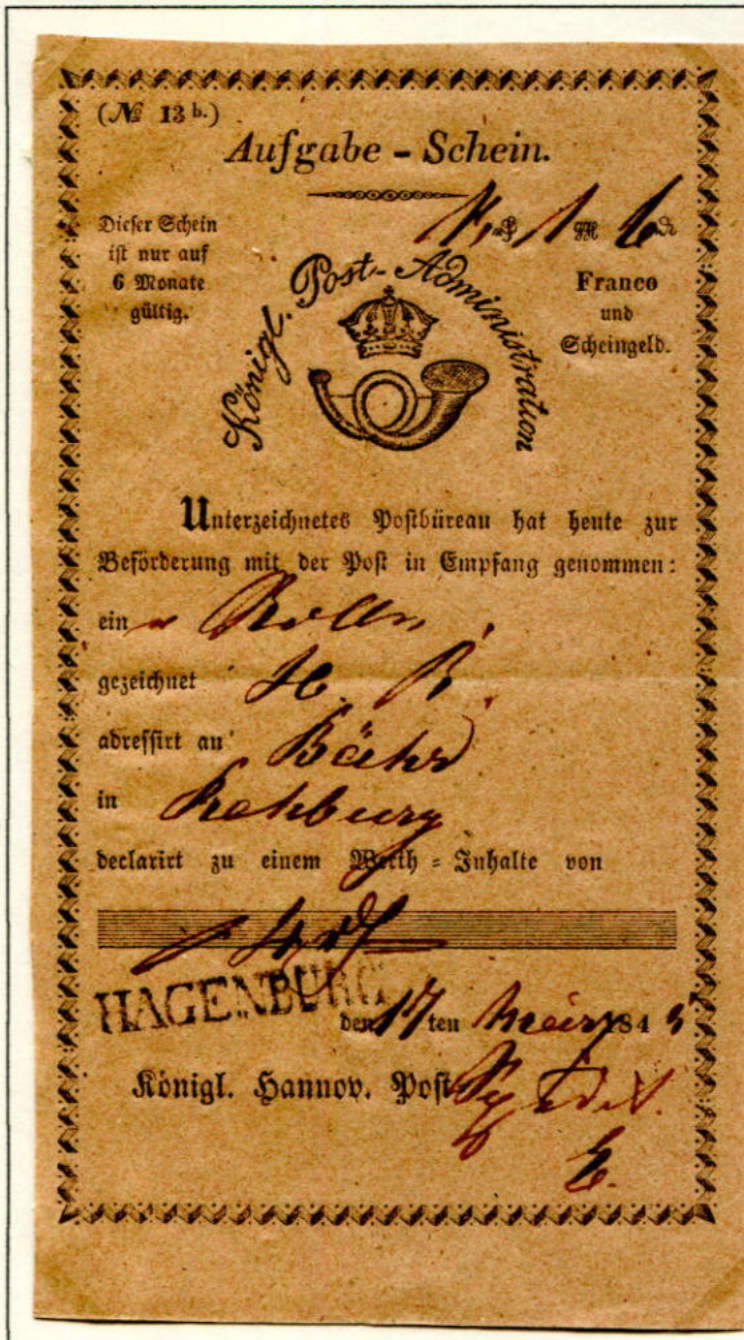 (№ 13 b.)
Aufgabe - Schein.
1 6
Dieser Schein
ist nur auf
6 Monate
gültig.
Franco
und
Scheingeld.
Königl. Post-Administration
Unterzeichnetes Postbüreau hat heute zur
Beförderung mit der Post in Empfang genommen:
ein Rolle
gezeichnet H. B.
adressirt an Bähr
in Rehburg
declarirt zu einem Werth-Inhalte von
HAGENBURG
den 17 ten März 184
Königl. Hannov. Post